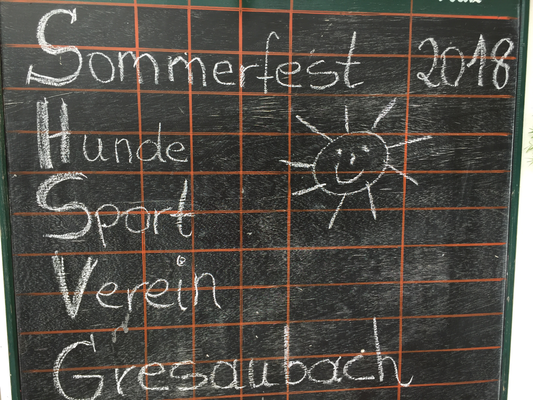 Sommerfest 2018
Hunde
Sport
Verein
Gresaubach